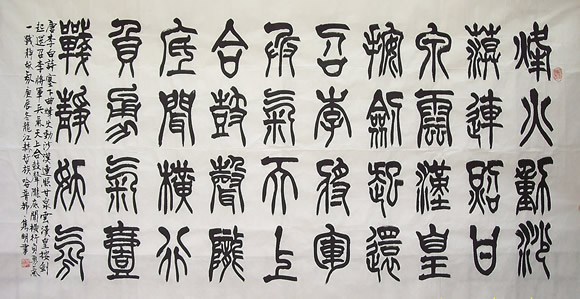 烽火動沙
漠連照甘
泉雲漢皇
按劍起還
召李將軍
兵氣天上
合鼓聲隴
底聞橫行
負勇氣壹
戰靜妖氛
唐李白詩塞下曲烽火動沙漠連照甘泉雲漢皇按劍
起還召李將軍兵氣天上合鼓聲隴底聞橫行負勇氣
一戰靜妖氛庚辰冬龍江書